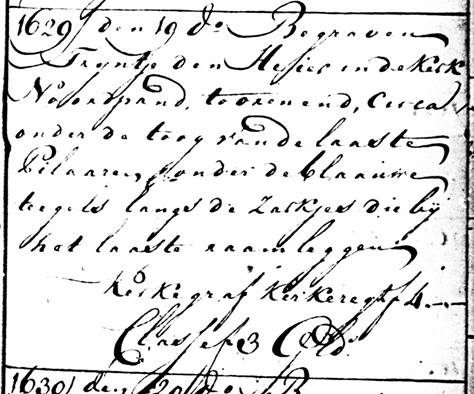 1629 / den 19 do Begraven
Tryntje den Hesier in de Kerk
Noordpand, toorenend, Circa
onder de toog van de laaste
Pilaaren, onder de blaauwe
teegels langs de Zarkjes die by
het laaste raam leggen
Kerke graf Kerkeregt f 4.-.-
Classe f 3 Gld.
1630 / den 20 do B